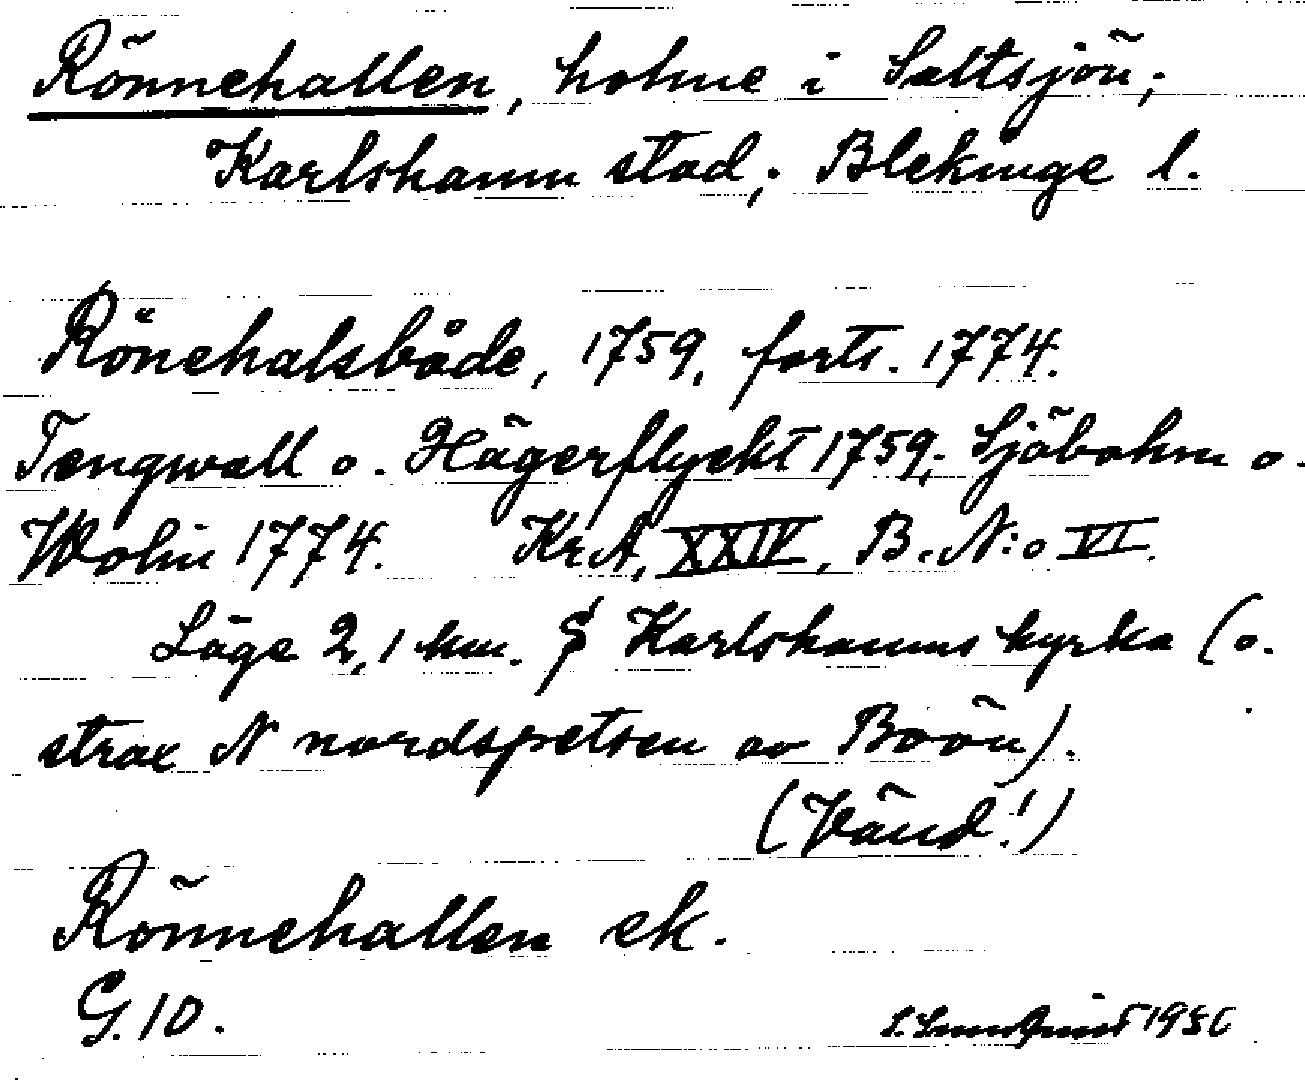 Rönnehallen, holme i Saltsjön;
Karlshamn stad; Blekinge l.
Rönehalsbåde, 1759, forts. 1774.
Tengwall o. Hägerflyckt 1759; Sjöbohm o.
Wolin 1774. KrA, XXIV, B. N:o VI.
Läge 2,1 km. S Karlshamns kyrka (o.
strax N nordspetsen av Boön).
(Vänd!)
Rönnehallen ek.
G. 10.
S. Lundquist 1936